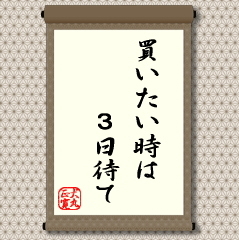 買いたい時は
３日待て
大丸
正實